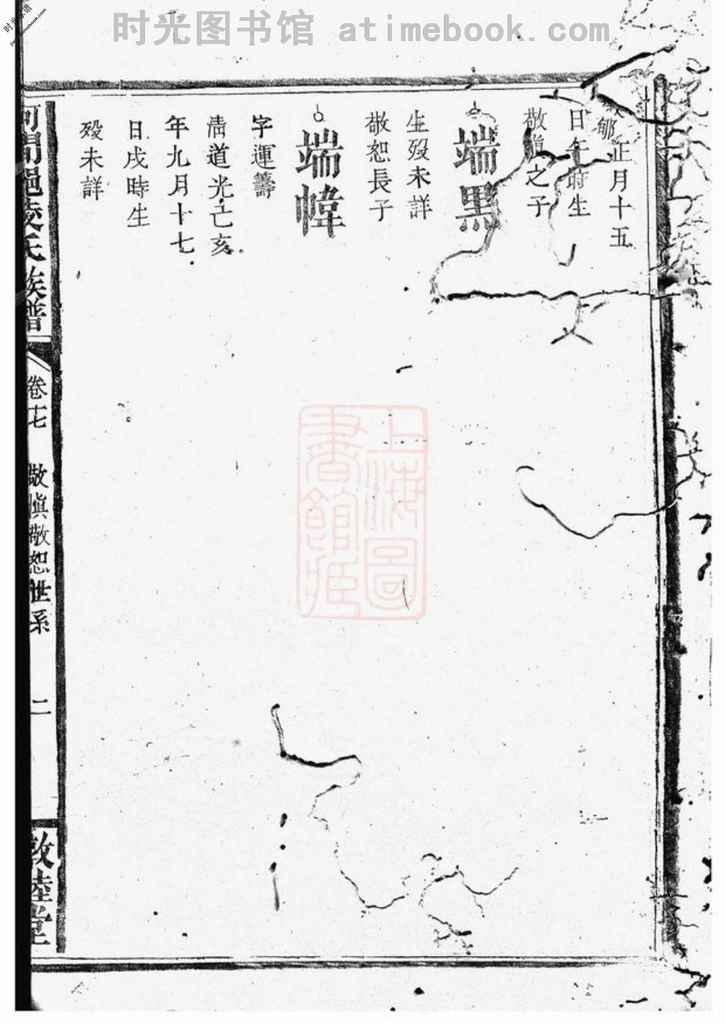 时光图书馆 atimebook.com
正月十五
日午時生
敬慎之子
端黑
生歿未詳
敬恕長子
端幃
字運籌
清道光己亥
年九月十七
日戌時生
歿未詳
凌氏族譜
卷十七
敬慎敬恕世系
二
敦睦堂
上海圖
書館藏